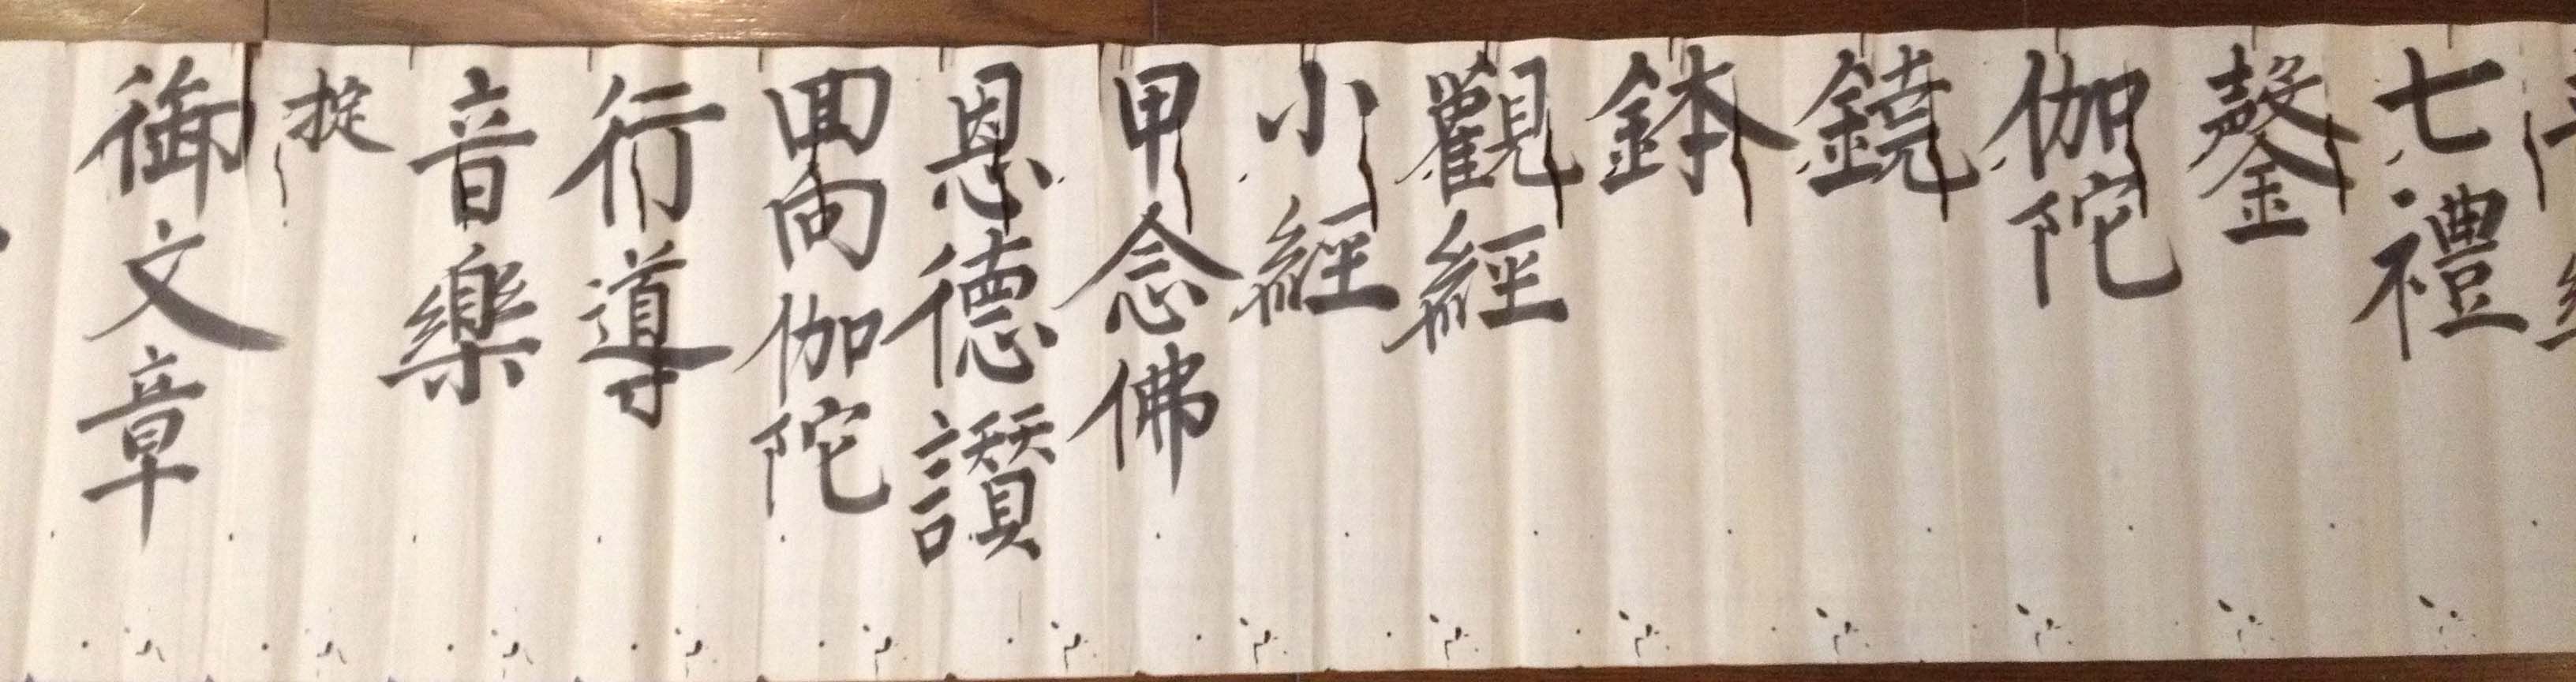 七禮
鏧
伽陀
鐃
鉢
觀經
小經
甲念佛
恩德讃
回向伽陀
行導
音樂
掟
御文章